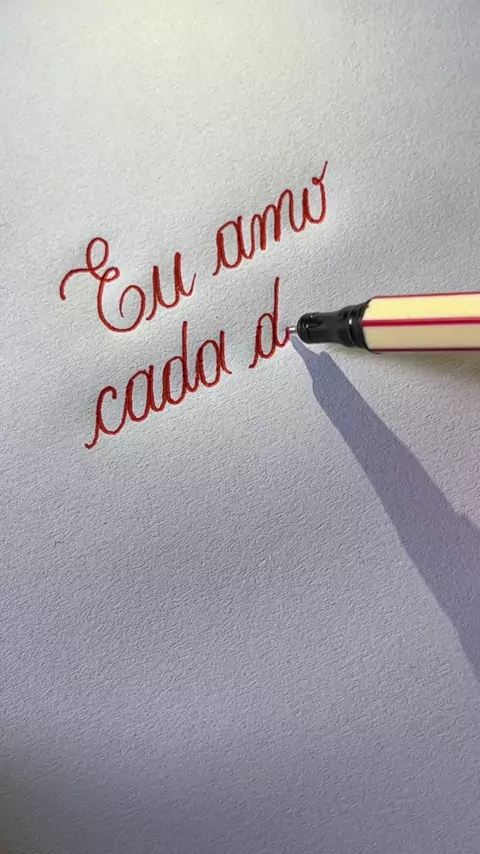 Eu amo
cada d